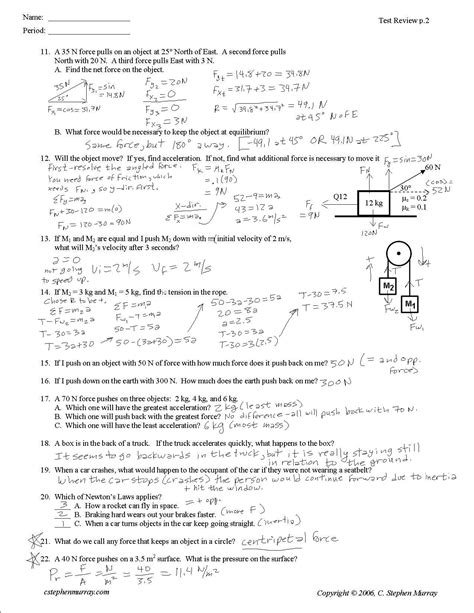 Name: ____________________
Test Review p.2
Period: ____________________
11. A 35 N force pulls on an object at 25° North of East. A second force pulls
North with 20 N. A third force pulls East with 3 N.
A. Find the net force on the object.
35N
25°
Fy1 = sin = 14.8N
Fx = cos = 31.7N
Fy2 = 20N
Fx2 = 0
Fy3 = 0
Fx3 = 3N
Fyt = 14.8 + 20 = 34.8N
Fxt = 31.7 + 3 = 34.7N
R = √34.8² + 34.7² = 49.1 N
at 45° N of E
B. What force would be necessary to keep the object at equilibrium?
Same force, but 180° away. [-49.1 at 45° OR 49.1N at 225°]
12. Will the object move? If yes, find acceleration. If not, find what additional force is necessary to move it
First-resolve the angled force.
You need force of friction, which
needs FN, so y-dir. first.
ΣFy = may
FN + 30 - 120 = m(0)
FN = 120 - 30 = 90N
Fk = μk FN
= .1(90)
= 9N
x-dir.
ΣFx = max
52 - 9 = ma
43 = 12a
a = 3.6 m/s²
Fy = sin = 30N
60 N
(cos) = 52N
FN
Q12
30°
Ff = 9N
12 kg
μs = 0.2
μk = 0.1
Fw
120N
13. If M1 and M2 are equal and I push M2 down with an initial velocity of 2 m/s,
what will M2's velocity after 3 seconds?
a = 0
not going
to speed up.
vi = 2 m/s
vf = 2 m/s
14. If M2 = 3 kg and M1 = 5 kg, find the tension in the rope.
ΣF = m2a
T - Fw2 = m2a
T - 30 = 3a
T = 3a + 30
ΣF = ma
Fw1 - T = ma
50 - T = 5a
50 - (3a + 30) = 5a
50 - 3a - 30 = 5a
20 = 8a
a = 2.5
T - 30 = 3a
T - 30 = 3(2.5)
T - 30 = 7.5
T = 37.5 N
T
T
M2
M1
Fw2
Fw1
15. If I push on an object with 50 N of force with how much force does it push back on me? 50 N (= and opp.
force)
16. If I push down on the earth with 300 N. How much does the earth push back on me? 300N
17. A 70 N force pushes on three objects: 2 kg, 4 kg, and 6 kg.
A. Which one will have the greatest acceleration? 2 kg (least mass)
B. Which one will push back with the greatest force? No difference - all will push back with 70 N.
C. Which one will have the least acceleration? 6 kg (most mass)
18. A box is in the back of a truck. If the truck accelerates quickly, what happens to the box?
It seems to go backwards in the truck, but it is really staying still
in relation to the ground.
19. When a car crashes, what would happen to the occupant of the car if they were not wearing a seatbelt?
When the car stops (crashes) the person would continue forward due to inertia
+ hit the window.
20. Which of Newton's Laws applies?
3 A. How a rocket can fly in space. = + opp.
2 B. Braking hard wears out your brakes faster. (more F)
1 C. When a car turns objects in the car keep going straight. (inertia)
21. What do we call any force that keeps an object in a circle? centripetal force
22. A 40 N force pushes on a 3.5 m² surface. What is the pressure on the surface?
Pr = F/A = N/m² = 40/3.5 = 11.4 N/m²
cstephenmurray.com
Copyright © 2006, C. Stephen Murray